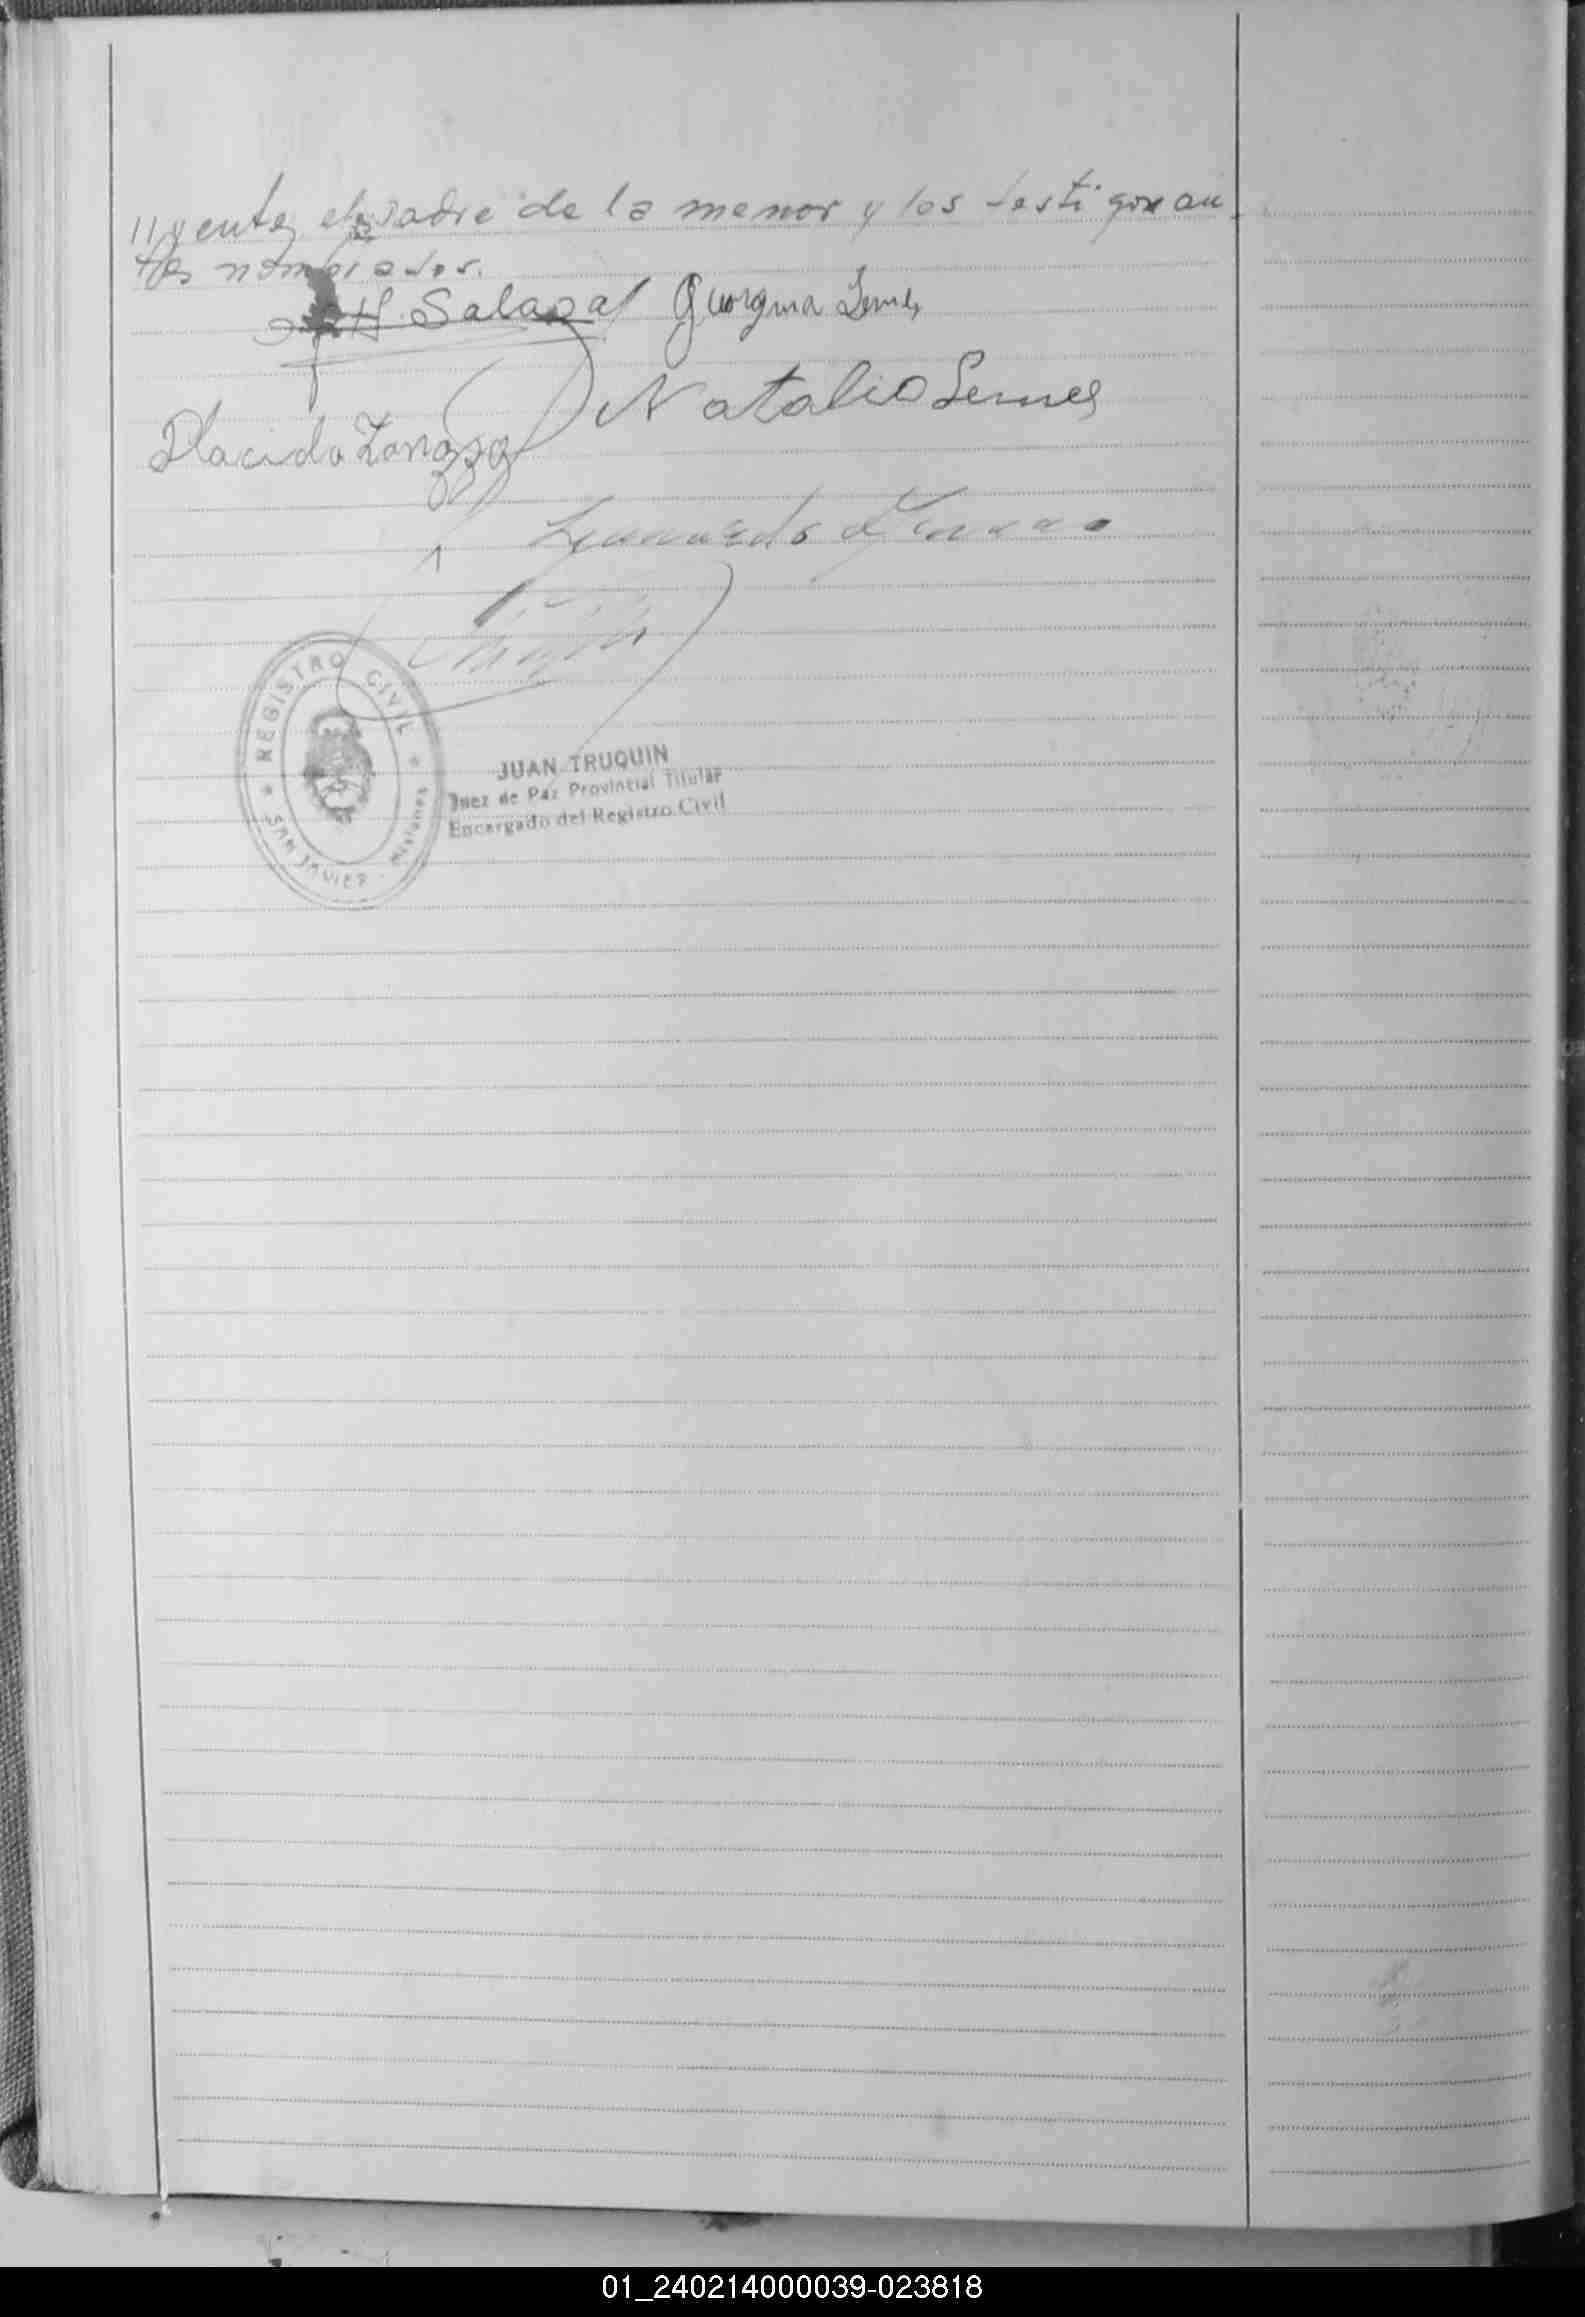 //yente, el padre de la menor y los testigos an-
tes nombrados.
H. Salazar Georgina Lemes
Natalio Lemes
Placido
Leonardo
REGISTRO CIVIL
SAN JAVIER - Misiones
JUAN TRUQUIN
Juez de Paz Provincial Titular
Encargado del Registro Civil
01_240214000039-023818